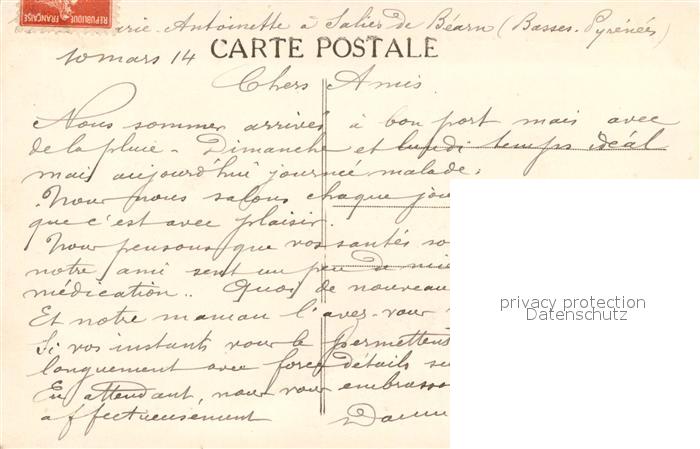 Marie-Antoinette à Salies de Béarn (Basses-Pyrénées)
RÉPUBLIQUE FRANÇAISE
CARTE POSTALE
10 mars 14
Chers Amis
Nous sommes arrivés à bon port mais avec
de la pluie - Dimanche et lundi temps idéal
mais aujourd'hui journée malade.
Nous nous salons chaque jou
que c'est avec plaisir.
Nous pensons que vos santés so
notre ami sent un peu de mie
médication.. Quoi de nouveau
Et notre maman l'avez-vous
Si vos instants vous le permettent
longuement avec force détails su
En attendant, nous vous embrasso
affectueusement
privacy protection
Datenschutz